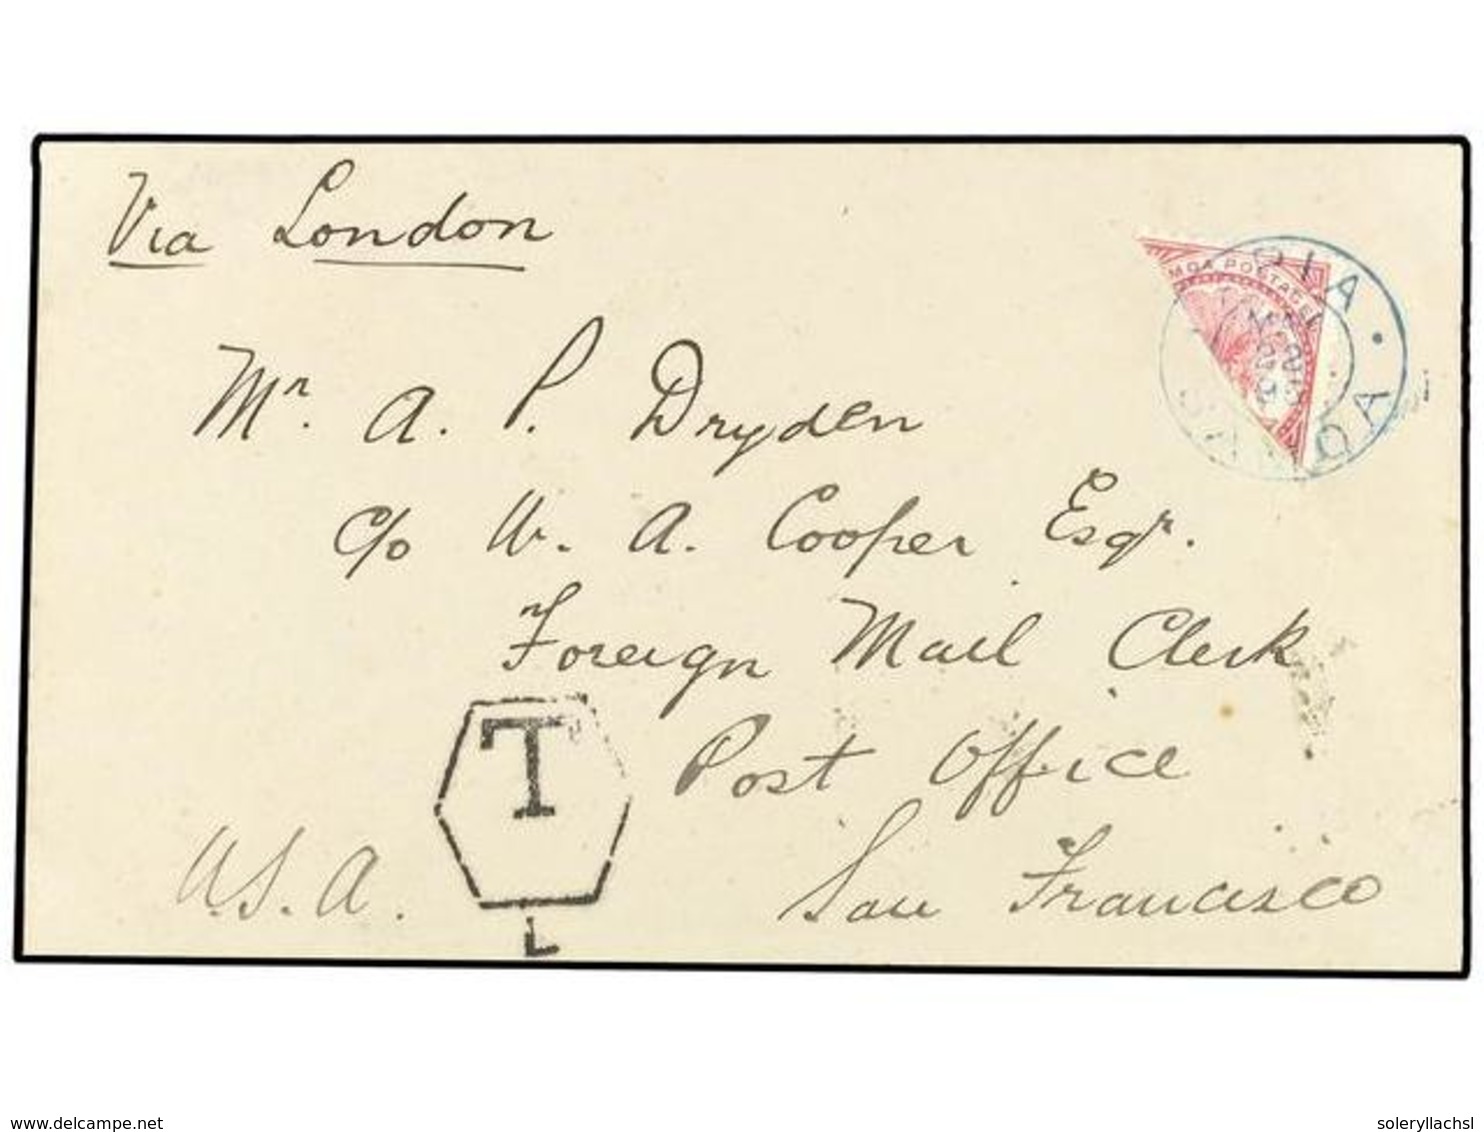 Via London
MOA POSTAGE
PIA •
SAMOA
Mr. A. P. Dryden
c/o W. A. Cooper Esqr.
Foreign Mail Clerk
T
Post Office
U.S.A.
San Francisco
L
delcampe.net
soleryllachsl